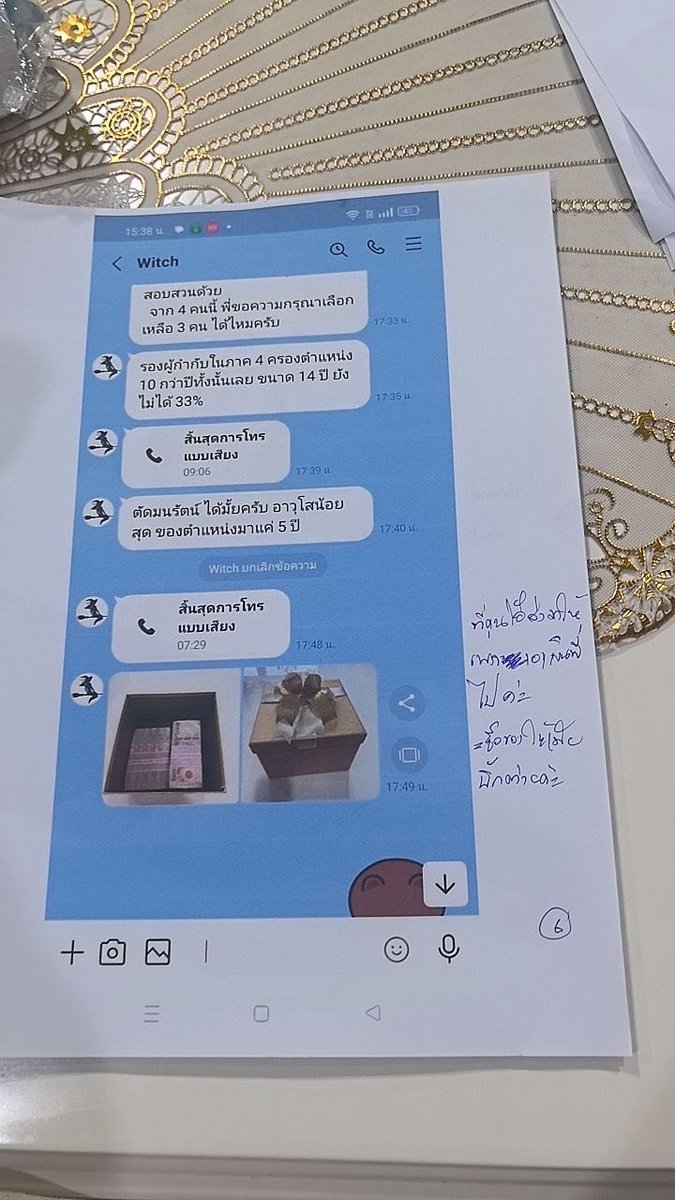 15:38 น.
Witch
สอบสวนด้วย
จาก 4 คนนี้ พี่ขอความกรุณาเลือก
เหลือ 3 คน ได้ไหมครับ
17:33 น.
รองผู้กำกับในภาค 4 ครองตำแหน่ง
10 กว่าปีทั้งนั้นเลย ขนาด 14 ปี ยัง
ไม่ได้ 33%
17:35 น.
สิ้นสุดการโทร
แบบเสียง
09:06
17:39 น.
ตัดมนรัตน์ ได้มั้ยครับ อาวุโสน้อย
สุด ของตำแหน่งมาแค่ 5 ปี
17:40 น.
Witch ยกเลิกข้อความ
สิ้นสุดการโทร
แบบเสียง
07:29
17:48 น.
17:49 น.
ไปค่ะ
6